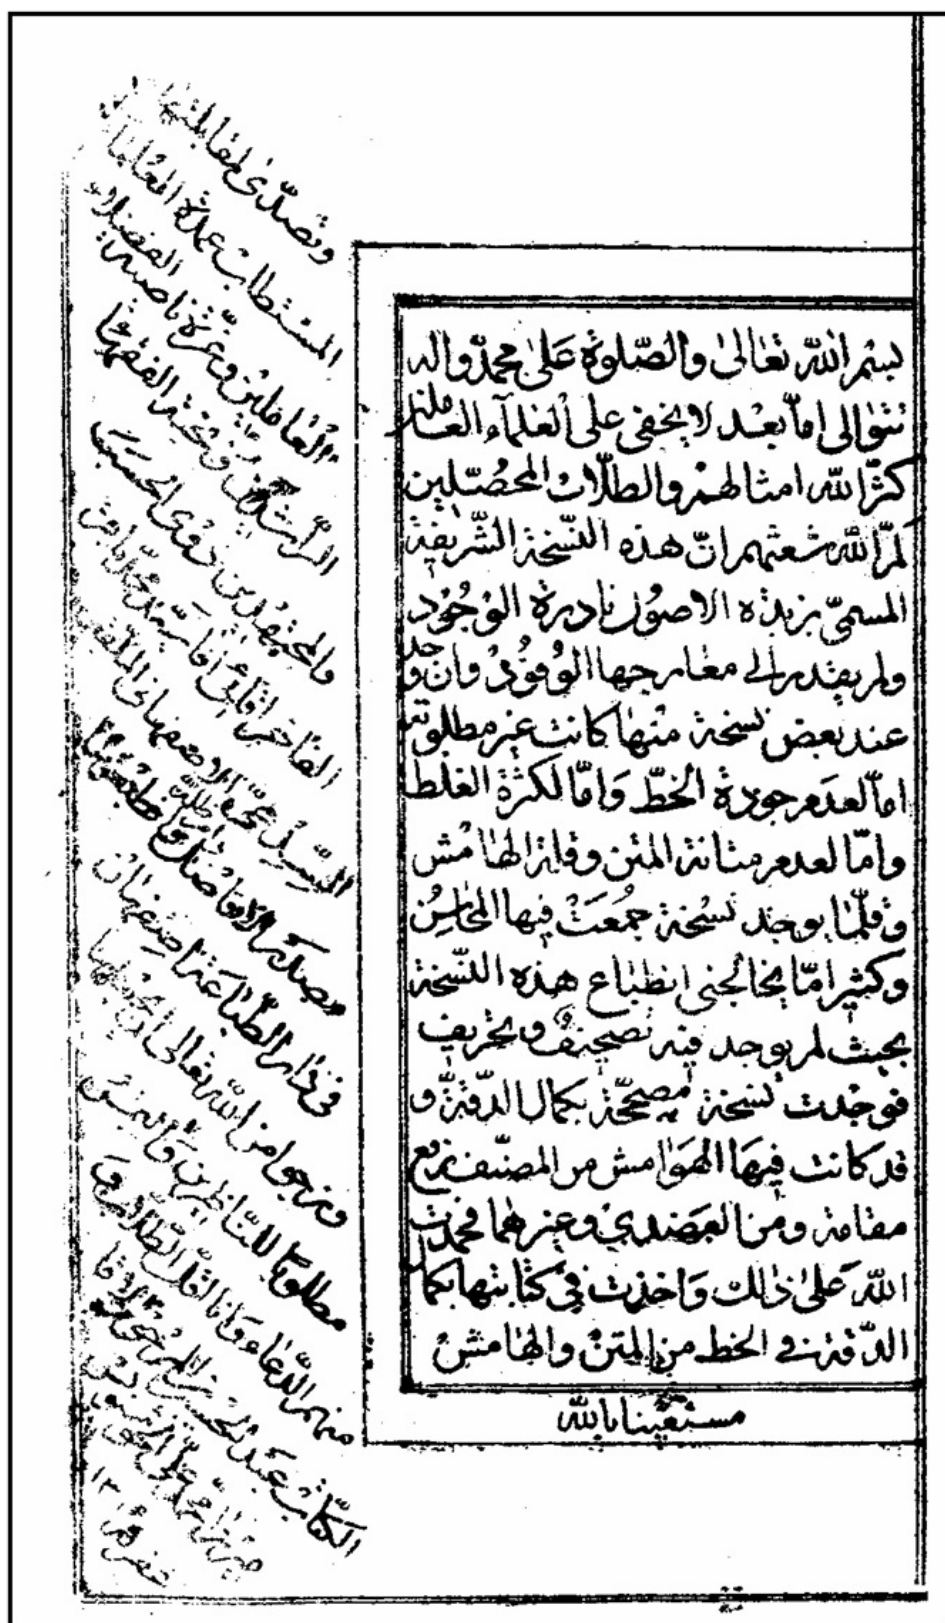 بسم الله تعالى والصلوة على محمد واله
نتوالى اما بعد لا يخفى على العلماء العاملين
كثر الله امثالهم والطلاب المحصلين
لم الله شعثهم ان هذه النسخة الشريفة
المسمى بزبدة الاصول نادرة الوجود
ولم يقدر الى معارجها الوفود وان وجد
عند بعض نسخة منها كانت غير مطلوبة
اما لعدم جودة الخط واما لكثرة الغلط
واما لعدم متانة المتن وقلة الهامش
وقلما يوجد نسخة جمعت فيها المحاسن
وكثيرا ما يخالجنى انطباع هذه النسخة
بحيث لم يوجد فيه تصحيف وتحريف
فوجدت نسخة مصححة بكمال الدقة و
قد كانت فيها الهوامش من المصنف رفع
مقامه ومن العضدي وغيرهما فحمدت
الله على ذلك واخذت في كتابتها بكمال
الدقة في الخط من المتن والهامش
مستعينا بالله
وتصدى لمقابلتها
المستطاب عمدة العلماء
العاملين وغرة ناصية الفضلاء
الراشدين ونخبة الفقهاء
والمجتهدين ذوى الحسب
الفاخر اقائى اقا سيد محمد باقر
الاصفهانى الملقب
فى دار الطباعة اصفهان
ونرجوا من الله تعالى ان يجعلها
مطلوبا للناظرين
منهم الدعاء وانا اقل الطلاب
الكاتب عبد الحسين المرحوم